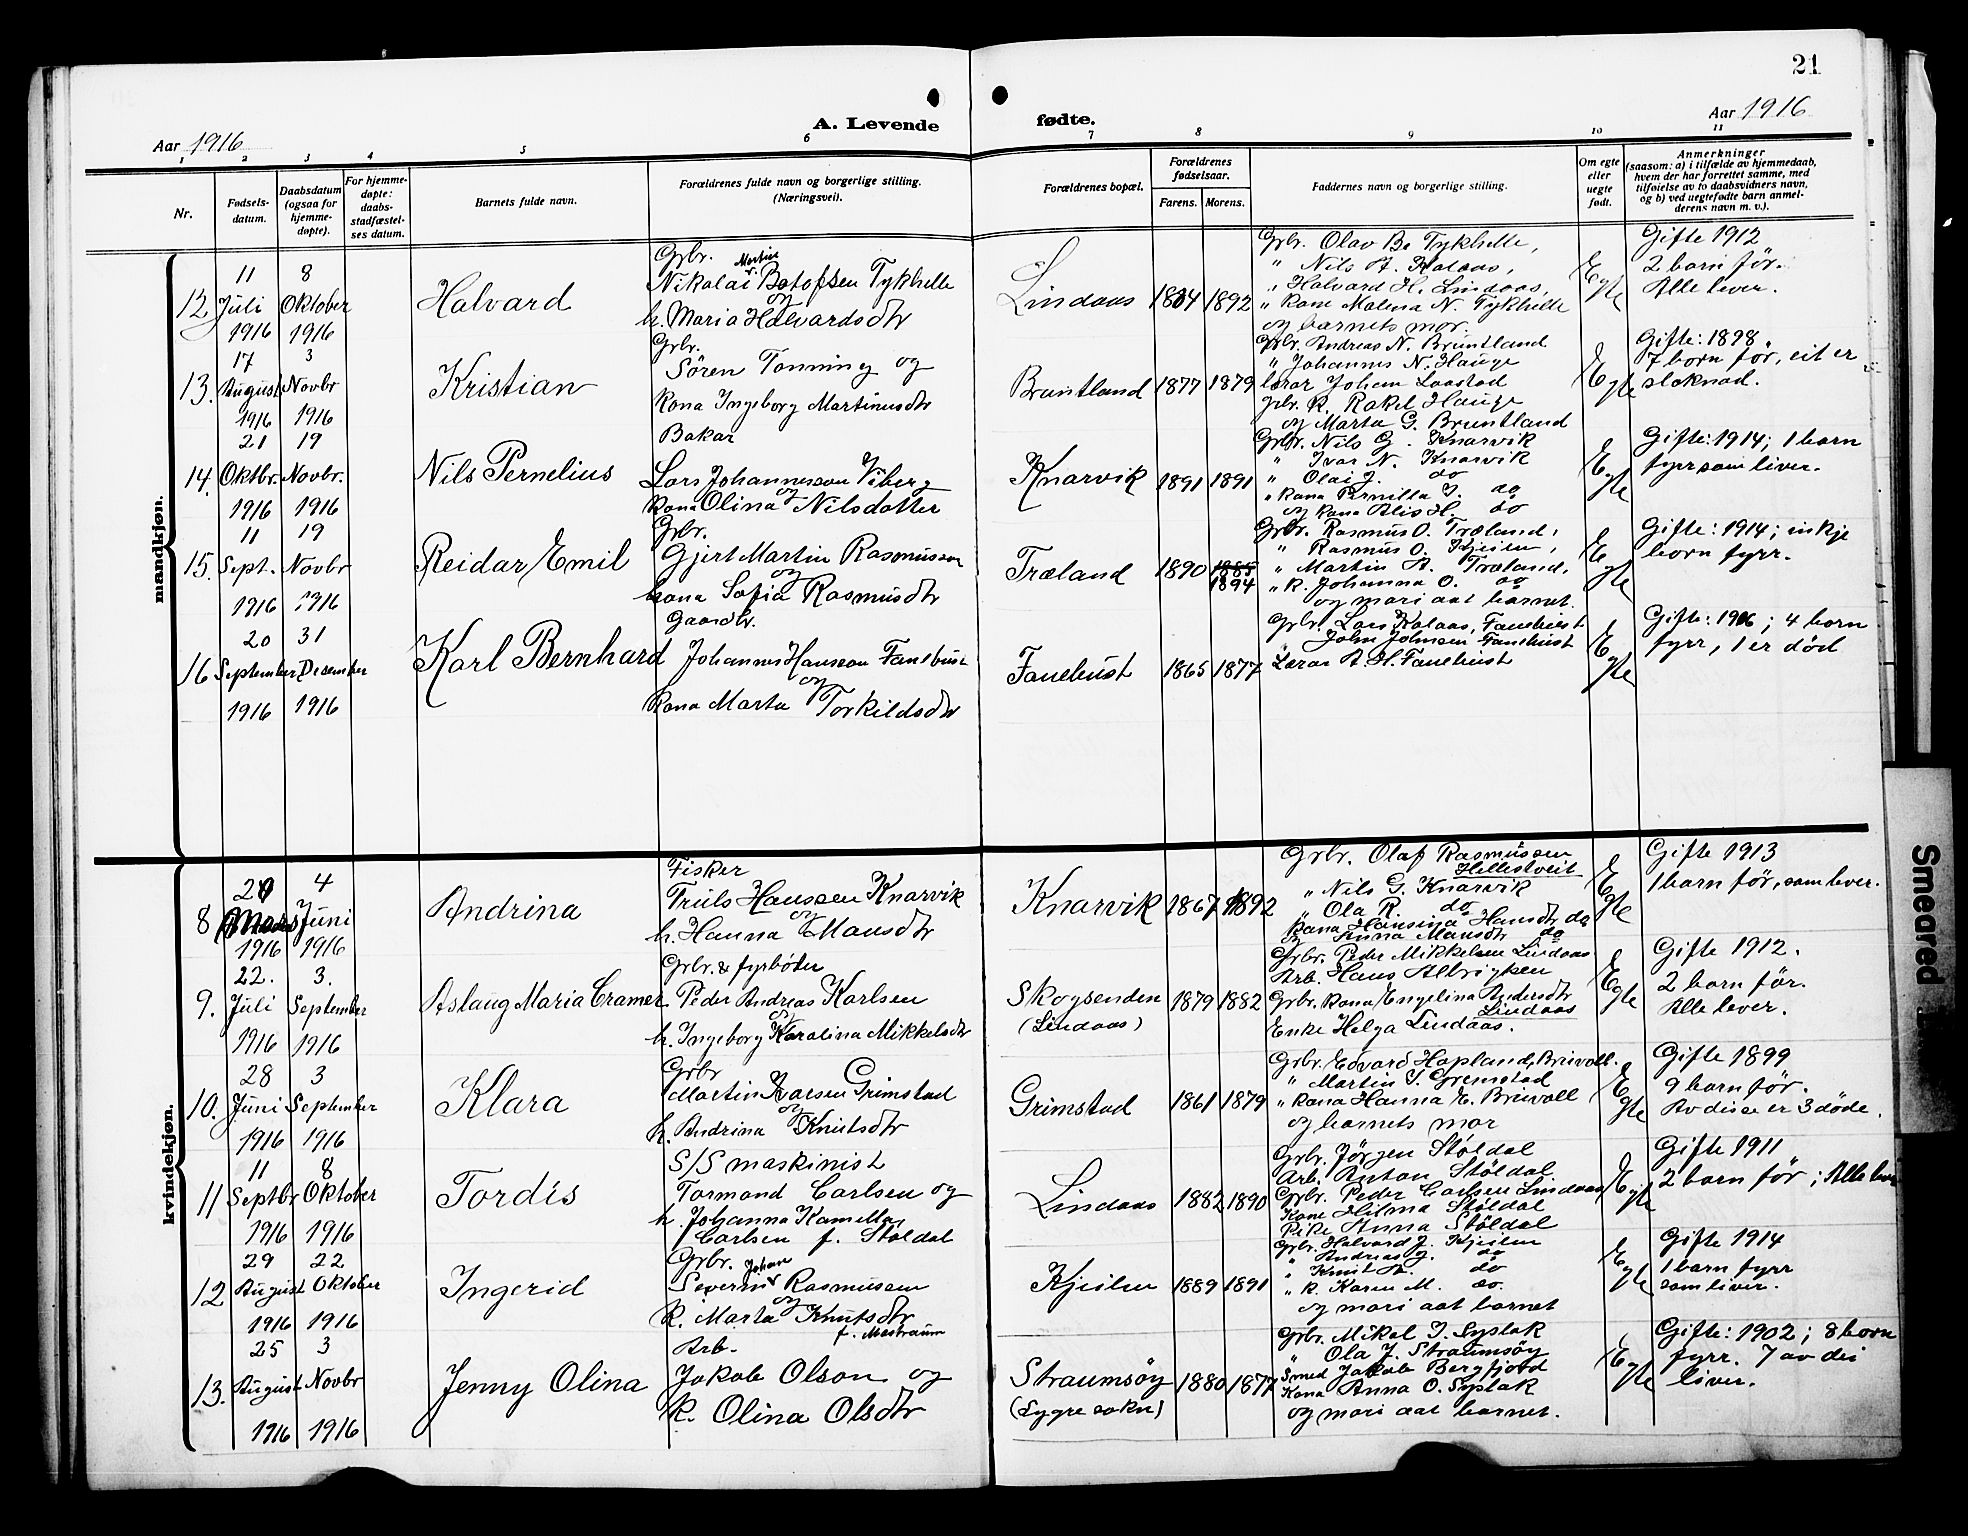 21
Aar 1916
A. Levende
fødte.
Aar 1916
1 2 3 4 5 6 7 8 9 10 11
Nr.
Fødsels-
datum.
Daabsdatum
(ogsaa for
hjemme-
døpte).
For hjemme-
døpte:
daabs-
stadfæstel-
ses datum.
Barnets fulde navn.
Forældrenes fulde navn og borgerlige stilling.
(Næringsvei).
Forældrenes bopæl.
Forældrenes
fødselsaar.
Farens. Morens.
Faddernes navn og borgerlige stilling.
Om egte
eller
uegte
født.
Anmerkninger
(saasom: a) i tilfælde av hjemmedaab,
hvem der har forrettet samme, med
tilføielse av to daabsvidners navn,
og b) ved uegtefødte barn anmel-
derens navn m. v.).
mandkjøn.
12.
11
Juli
1916
8
Oktober
1916
Halvard
Grbr.
Martin
Nikolai v Botofsen Tykhelle
og
h. Maria Halvardsdtr
Lindaas
1884
1892
Grbr. Olav B. Tykhelle,
" Nils A. Kolaas,
" Halvard H. Lindaas,
" Kone Malena N. Tykhelle
og barnets mor.
Egte
Gifte 1912
2 barn før.
Alle lever.
13.
17
August
1916
3
Novbr
1916
Kristian
Grbr.
Søren Tonning og
Kona Ingeborg Martinusdtr
Bruntland
1877
1879
Grbr. Andreas N. Bruntland
" Johannes N. Hauge
lærar Johan Laastad
grbr. K. Rakel Hauge
og Marta G. Bruntland
Egte
Gifte: 1898.
7 born før, eit er
sloknad.
14.
21
Oktbr.
1916
19
Novbr.
1916
Nils Pernelius
Bakar
Lars Johannesson Viberg
og
Kona Olina Nilsdotter
Knarvik
1891
1891
Grbr. Nils G. Knarvik
" Ivar N. Knarvik
" Olai J. do
" Kona Pernilla I. do
og Kona Alis H. do
Egte
Gifte: 1914; 1 barn
fyrr som liver.
15.
11
Sept.
1916
19
Novbr
1916
Reidar Emil
Grbr.
Gjert Martin Rasmussen
og
kona Sofia Rasmusdtr
Træland
1890
1885
1894
Grbr. Rasmus O. Træland,
" Rasmus O. Kjeilen,
" Martin A. Træland,
" K. Johanna O. do
og mori aat barnet.
Egte
Gifte: 1914; inkje
born fyrr.
16
20
September
1916
31
Desember
1916
Karl Bernhard
Gaardbr.
Johannes Hansson Fanebust
og
Kona Marta Torkildsdtr
Fanebust
1865
1877
Grbr. Lars Kolaas, Fanebust
" John Johnsen Fanebust
Lærar A. H. Fanebust
Egte
Gifte: 1906; 4 born
fyrr, 1 er død
kvindekjøn.
8
Mars
1916
4
Juni
1916
Andrina
Fisker
Truls Hanssen Knarvik
og
h. Hanna Mansdtr
Knarvik
1867
1892
Grbr. Olaf Rasmussen
Hellestveit
" Nils G. Knarvik
" Ola R. do
Kona Hansina Hansdtr do
og Anna Mansdtr do
Egte
Gifte 1913
1 barn før, som lever.
9.
22.
Juli
1916
3.
September
1916
Aslaug Maria Cramer
Grbr. & fyrbøter
Peder Andreas Karlsen
og
h. Ingeborg Karolina Mikkelsdtr
Skogsenden
(Lindaas)
1879
1882
Grbr. Peder Mikkelsen Lindaas
Arb. Hans Albrigtsen
Grbr. kona Engelina Andersdtr
Lindaas
Enke Helga Lindaas.
Egte
Gifte 1912.
2 barn før.
Alle lever.
10.
28
Juni
1916
3
September
1916
Klara
Grbr
Martin Larsen Grimstad
og
h. Andrina Knutsdtr
Grimstad
1861
1879
Grbr. Edvard Hopland, Brivoll.
" Martin I. Gremstad
" Kona Hanna E. Brivoll
og barnets mor
Egte
Gifte 1899
9 barn før.
Av disse er 3 døde.
11
11
Septbr
1916
8
Oktober
1916
Tordis
S/S maskinist
Tormond Carlsen og
h. Johanna Kamella
Carlsen f. Støldal
Lindaas
1882
1890
Grbr. Jørgen Støldal
Arb. Anton Støldal
Grbr. Peder Carlsen Lindaas
Kone Hilma Støldal
Pike Anna Støldal
Egte
Gifte 1911
2 barn før; Alle lever
12
29
August
1916
22
Oktober
1916
Ingerid
Grbr.
Johan
Severin v Rasmussen
og
K. Marta Knutsdtr
f. Mostraum
Kjeilen
1889
1891
Grbr. Halvard J. Kjeilen
" Andreas J. do
" Knut A. do
" K. Karen M. do.
og mori aat barnet
Egte
Gifte 1914
1 barn fyrr
som liver.
13.
25
August
1916
3
Novbr
1916
Jenny Olina
Arb.
Jakob Olson og
K. Olina Olsdtr
Straumsøy
(Lygre sokn)
1880
1877
Grbr. Mikal I. Syslak
" Ola J. Straumsøy
Smed Jakob Bergfjord
Kona Anna O. Syslak
og mori aat barnet.
Egte
Gifte: 1902; 8 born
fyrr. 7 av dei
liver.
Smeared